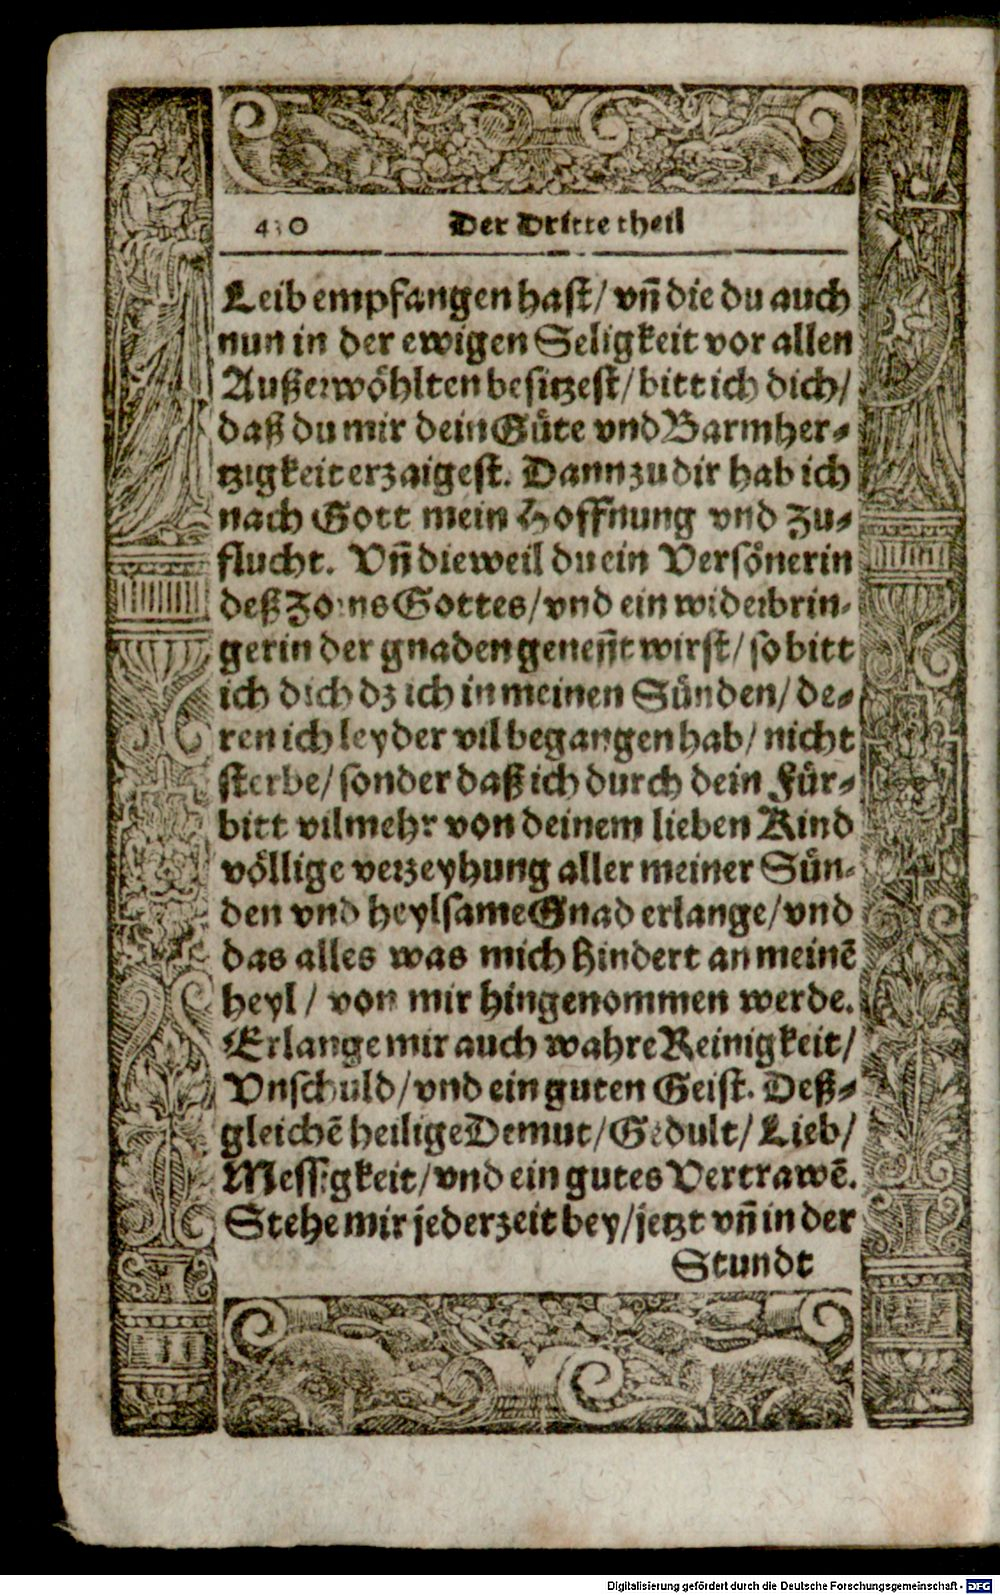 430 Der Dritte theil
Leib empfangen hast/ vñ die du auch
nun in der ewigen Seligkeit vor allen
Außerwöhlten besitzest/ bitt ich dich/
daß du mir dein Güte vnd Barmher⸗
tzigkeit erzaigest. Dann zu dir hab ich
nach Gott mein Hoffnung vnd Zu⸗
flucht. Vñ dieweil du ein Versönerin
deß Zorns Gottes/ vnd ein widerbrin⸗
gerin der gnaden geneñt wirst/ so bitt
ich dich dz ich in meinen Sünden/ de⸗
ren ich leyder vil begangen hab/ nicht
sterbe/ sonder daß ich durch dein Für⸗
bitt vilmehr von deinem lieben Kind
völlige verzeyhung aller meiner Sün⸗
den vnd heylsame Gnad erlange/ vnd
das alles was mich hindert an meinē
heyl/ von mir hingenommen werde.
Erlange mir auch wahre Reinigkeit/
Vnschuld/ vnd ein guten Geist. Deß⸗
gleichē heilige Demut/ Gedult/ Lieb/
Messigkeit/ vnd ein gutes Vertrawē.
Stehe mir jederzeit bey/ jetzt vñ in der
Stundt
Digitalisierung gefördert durch die Deutsche Forschungsgemeinschaft - DFG